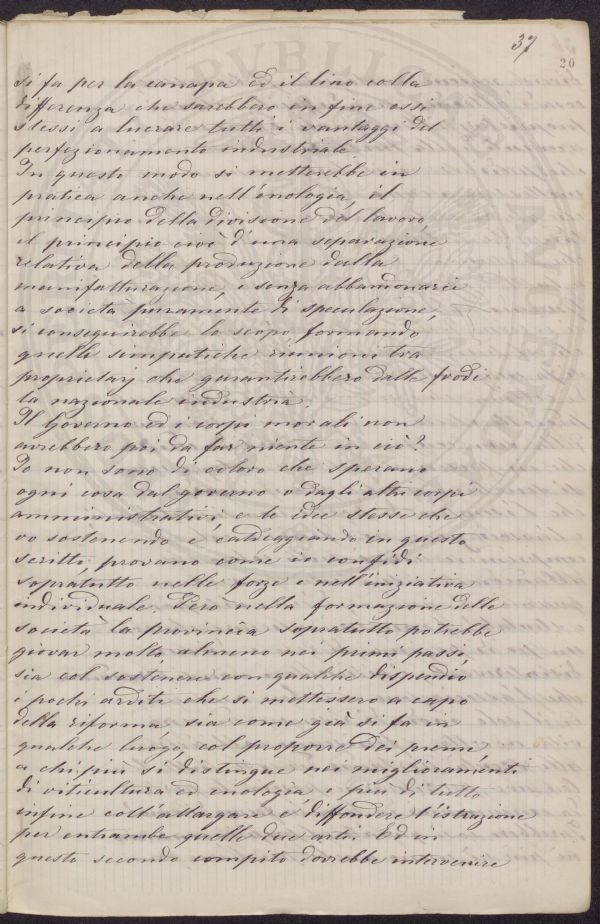 37
20
si fa per la canapa ed il lino colla
differenza che sarebbero in fine essi
stessi a lucrare tutti i vantaggi del
perfezionamento industriale.
In questo modo si metterebbe in
pratica anche nell'enologia, il
principio della divisione del lavoro,
il principio cioè d'una separazione
relativa della produzione dalla
manifatturazione, e senza abbandonarsi
a società puramente di speculazione,
si conseguirebbe lo scopo formando
quelle simpatiche riunioni tra
proprietarj che garantirebbero dalle frodi
la nazionale industria.
Il Governo ed i corpi morali non
avrebbero poi da far niente in ciò?
Io non sono di coloro che sperano
ogni cosa dal governo o dagli altri corpi
amministrativi, e le idee stesse che
vo sostenendo e caldeggiando in questo
scritto, provano come io confidi
sopratutto nelle forze e nell'iniziativa
individuale. Però nella formazione delle
società la provincia sopratutto potrebbe
giovar molto, almeno nei primi passi,
sia col sostenere con qualche dispendio
i pochi arditi che si mettessero a capo
della riforma, sia come già si fa in
qualche luogo, col proporre dei premi,
a chi più si distingue nei miglioramenti
di viticultura ed enologia, e più di tutto
infine coll'allargare e diffondere l'istruzione
per entrambe quelle due arti. Ed in
questo secondo compito dovrebbe intervenire